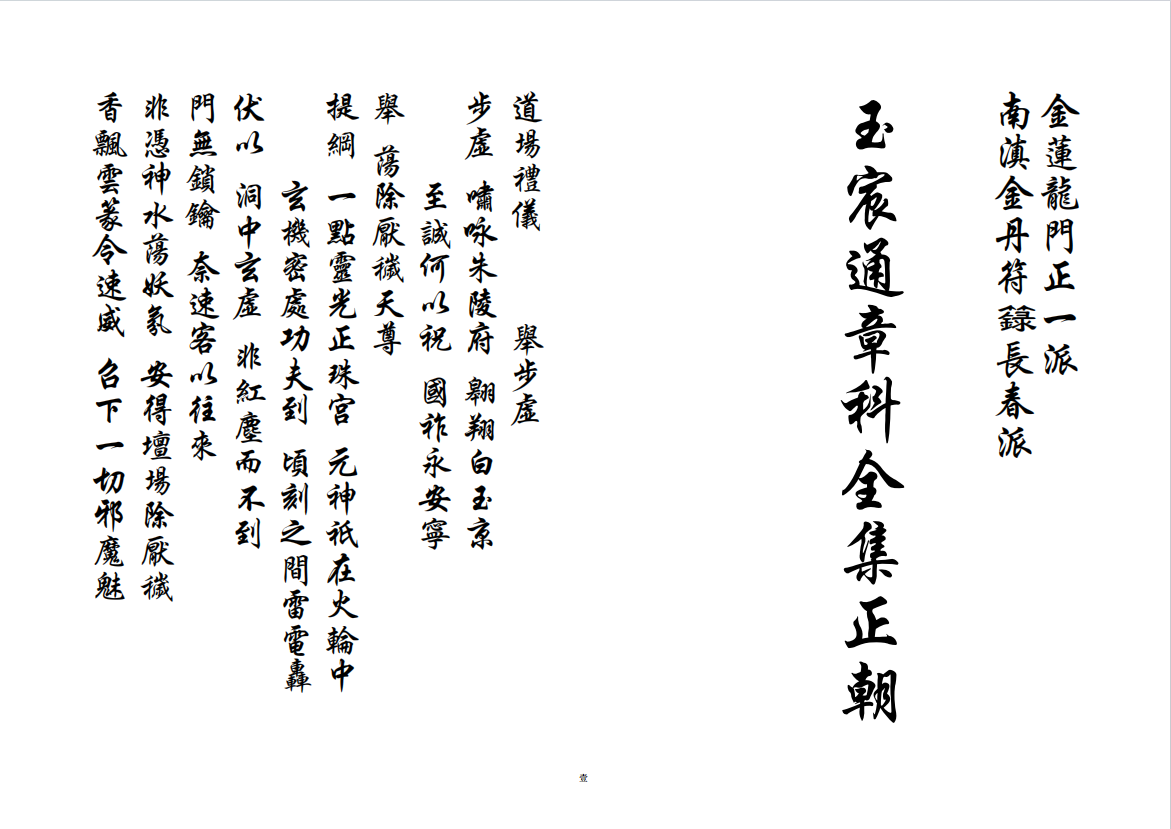 金蓮龍門正一派
南滇金丹符籙長春派
玉宸通章科全集正朝
道場禮儀 舉步虛
步虛 嘯咏朱陵府 翱翔白玉京
至誠何以祝 國祚永安寧
舉 蕩除厭穢天尊
提綱 一點靈光正珠宮 元神祇在火輪中
玄機密處功夫到 頃刻之間雷電轟
伏以 洞中玄虛 非紅塵而不到
門無鎖鑰 奈速客以往來
非憑神水蕩妖氛 安得壇場除厭穢
香飄雲篆令速威 召下一切邪魔魅
壹